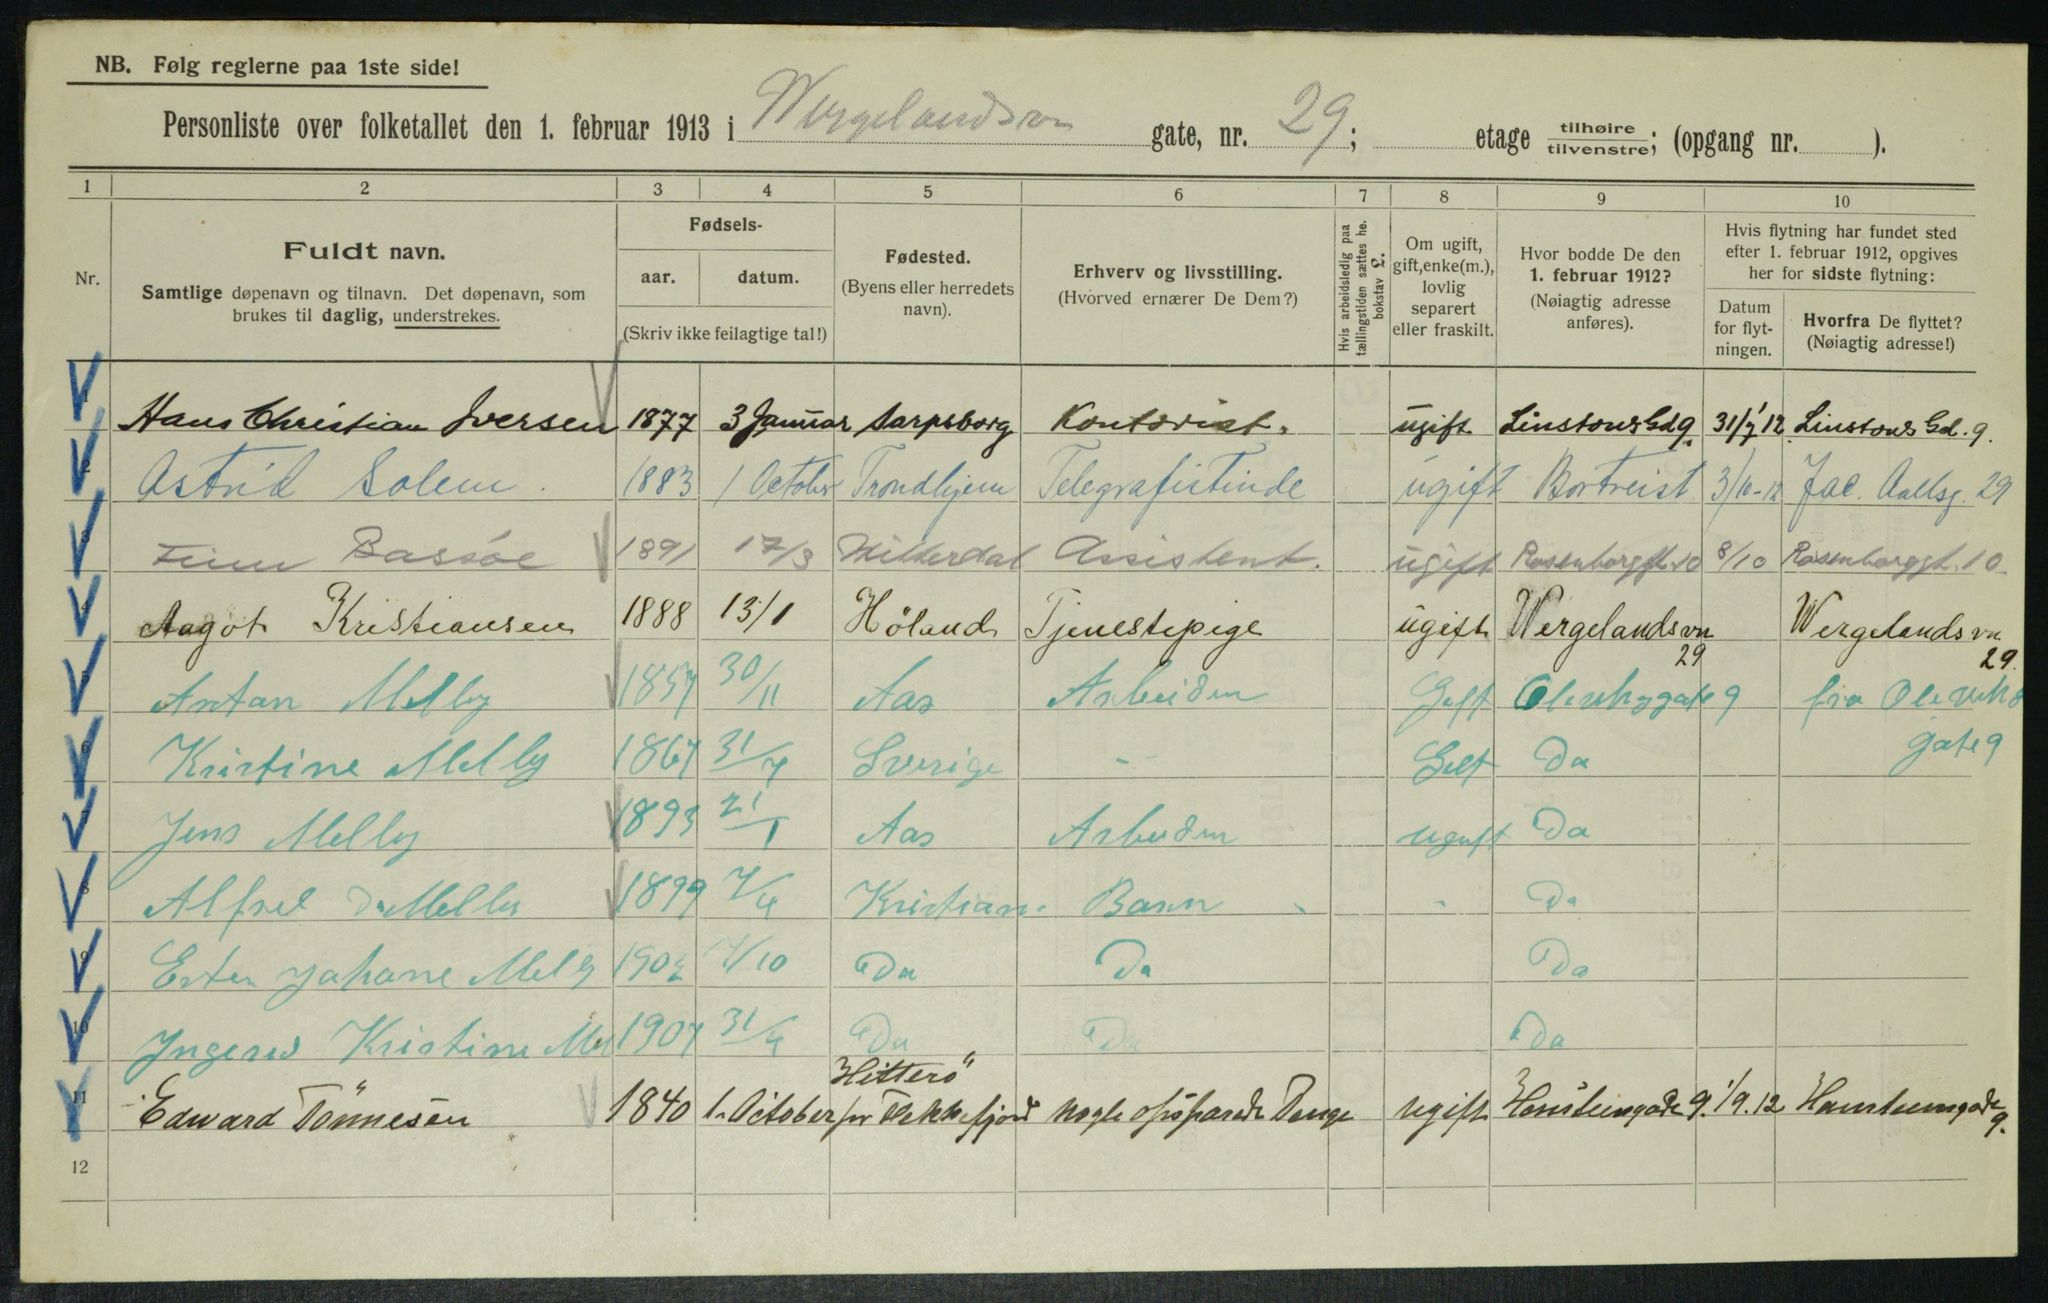 NB. Følg reglerne paa 1ste side!
Personliste over folketallet den 1. februar 1913 i Wergelandsvn gate, nr. 29; etage tilhøire tilvenstre; (opgang nr. ).
1 2 3 4 5 6 7 8 9 10
Nr.
Fuldt navn.
Samtlige døpenavn og tilnavn. Det døpenavn, som
brukes til daglig, understrekes.
Fødsels-
aar. datum.
(Skriv ikke feilagtige tal!)
Fødested.
(Byens eller herredets
navn).
Erhverv og livsstilling.
(Hvorved ernærer De Dem?)
Hvis arbeidsledig paa
tællingstiden sættes he.
bokstav L.
Om ugift,
gift, enke(m.),
lovlig
separert
eller fraskilt.
Hvor bodde De den
1. februar 1912?
(Nøiagtig adresse
anføres).
Hvis flytning har fundet sted
efter 1. februar 1912, opgives
her for sidste flytning:
Datum
for flyt-
ningen.
Hvorfra De flyttet?
(Nøiagtig adresse!)
1 Hans Christian Iversen 1877 3 Januar Sarpsborg Kontorist. ugift Linstows Gd 9. 31/7 12 Linstows Gd. 9.
2 Astrid Solem. 1883 1 October Trondhjem Telegrafistinde ugift Bortreist 3/10-12 Jac. Aallsg. 29
3 Finn Bassøe 1891 17/3 Hitterdal Assistent. ugift Rosenborggt. 10 8/10 Rosenborggt. 10
4 Aagot Kristiansen 1888 13/1 Höland Tjenestepige ugift Wergelandsvn 29 Wergelandsvn 29.
5 Antan Melby 1857 30/11 Aas Arbeider Gift Olevigsgate 9 fra Ole
gate 9
6 Kristine Melby 1867 31/7 Sverige - Gift Do
7 Jens Melby 1893 21/1 Aas Arbeider ugift Do
8 Alfred Melby 1899 7/4 Kristian. Barn - Do
9 Ester Johane Melby 190 7/10 Do Do Do
10 Ingerd Kristine Mel 1907 31/4 Do Do Do
11 Edward Tönnesen 1840 1. October Hitterö pr Flekkefjord nogle opsparede Penge ugift 9. 1/9. 12 9.
12